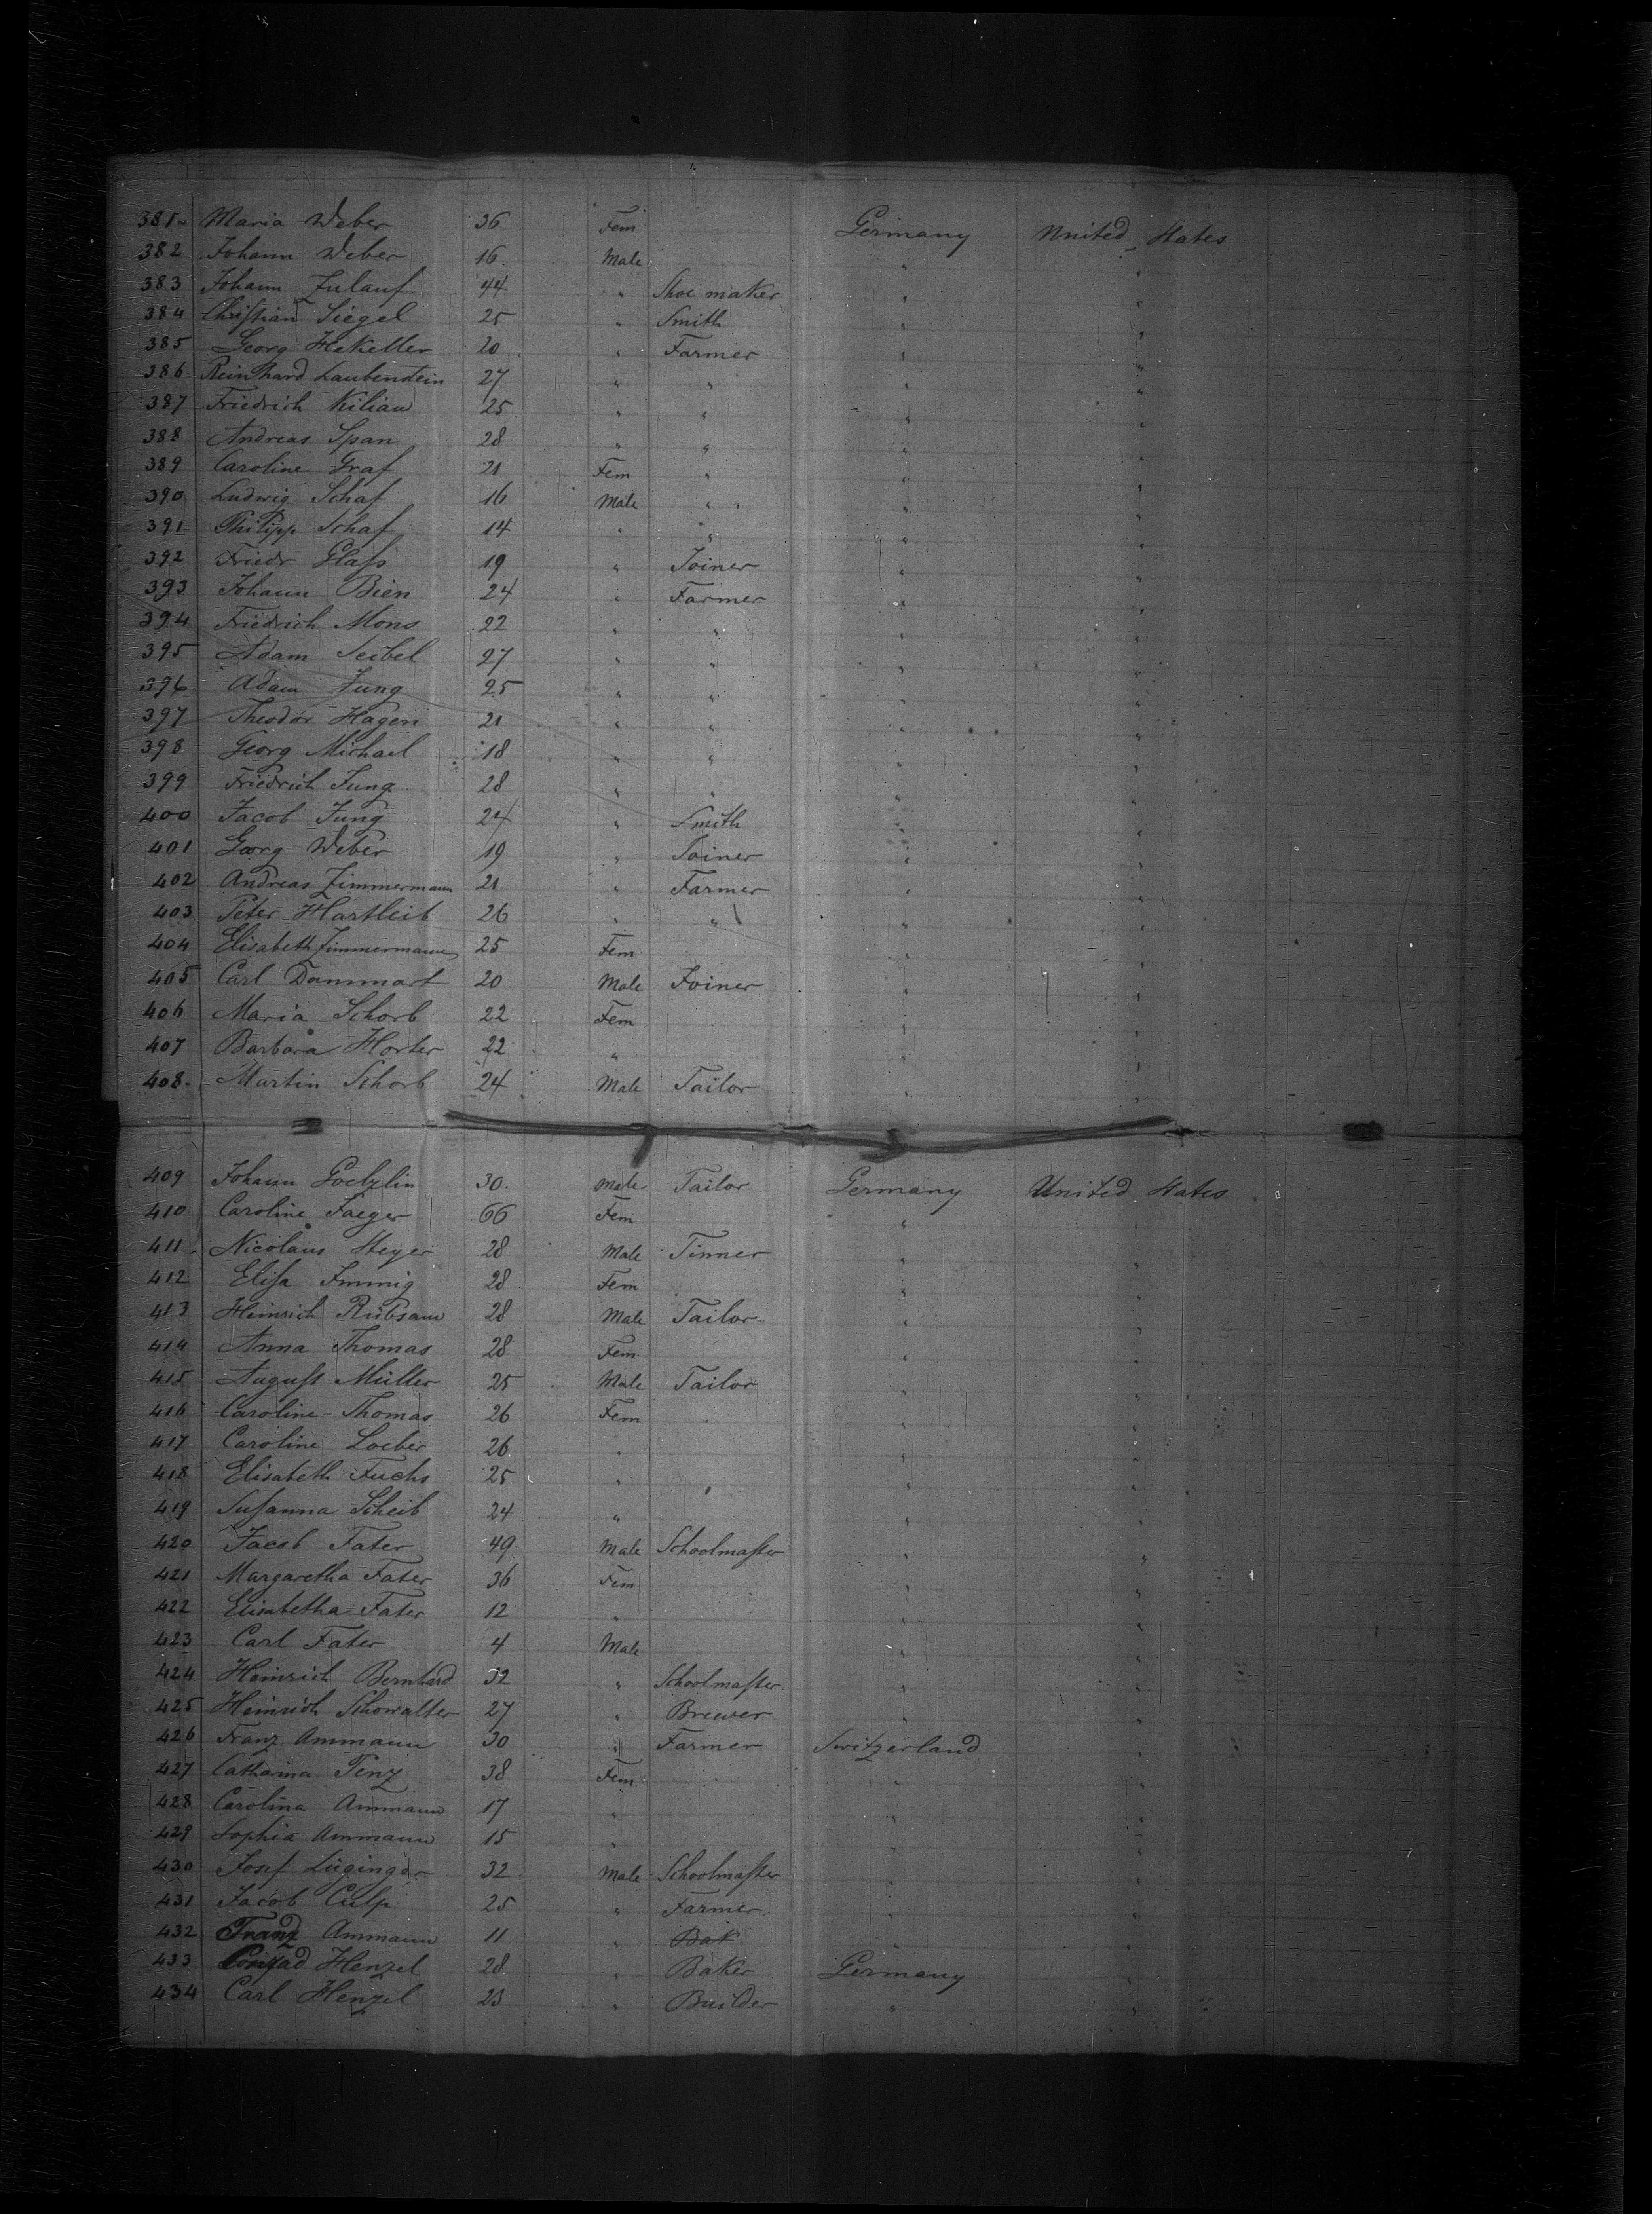 381 Maria Weber 36 Fem Germany United States
382 Johann Weber 16 Male " "
383 Johann Zulauf 44 " Shoe maker " "
384 Christian Siegel 25 " Smith " "
385 Georg Hekeller 20 " Farmer " "
386 Reinhard Laubenstein 27 " " " "
387 Friedrich Kilian 25 " " " "
388 Andreas Span 28 " " " "
389 Caroline Graf 21 Fem " " "
390 Ludwig Schaf 16 Male " " "
391 Philipp Schaf 14 " " " "
392 Friedr Glass 19 " Joiner " "
393 Johann Bien 24 " Farmer " "
394 Friedrich Mons 22 " " " "
395 Adam Seibel 27 " " " "
396 Adam Jung 25 " " " "
397 Theodor Hagen 21 " " " "
398 Georg Michael 18 " " " "
399 Friedrich Jung 28 " " " "
400 Jacob Jung 24 " Smith " "
401 Georg Weber 19 " Joiner " "
402 Andreas Zimmermann 21 " Farmer " "
403 Peter Hartleib 26 " " " "
404 Elisabeth Zimmermann 25 Fem " "
405 Carl Dammart 20 Male Joiner " "
406 Maria Schorb 22 Fem " "
407 Barbara Horter 22 " " "
408 Martin Schorb 24 Male Tailor " "
409 Johann Goelzlin 30 Male Tailor Germany United States
410 Caroline Jaeger 66 Fem " "
411 Nicolaus Steyer 28 Male Tinner " "
412 Elisa Immig 28 Fem " "
413 Heinrich Rübsam 28 Male Tailor " "
414 Anna Thomas 28 Fem " "
415 August Müller 25 Male Tailor " "
416 Caroline Thomas 26 Fem " "
417 Caroline Loeber 26 " " "
418 Elisabeth Fuchs 25 " " "
419 Susanna Scheib 24 " " "
420 Jacob Fater 49 Male Schoolmaster " "
421 Margaretha Fater 36 Fem " "
422 Elisabetha Fater 12 " " "
423 Carl Fater 4 Male " "
424 Heinrich Bernhard 32 " Schoolmaster " "
425 Heinrich Schowalter 27 " Brewer " "
426 Franz Ammann 30 " Farmer Switzerland "
427 Catharina Penz 38 Fem " "
428 Carolina Ammann 17 " " "
429 Sophia Ammann 15 " " "
430 Josef Lüginger 32 Male Schoolmaster " "
431 Jacob Culp 25 " Farmer " "
432 Franz Ammann 11 " Bak " "
433 Conrad Henzel 28 " Baker Germany "
434 Carl Henzel 23 " Builder " "